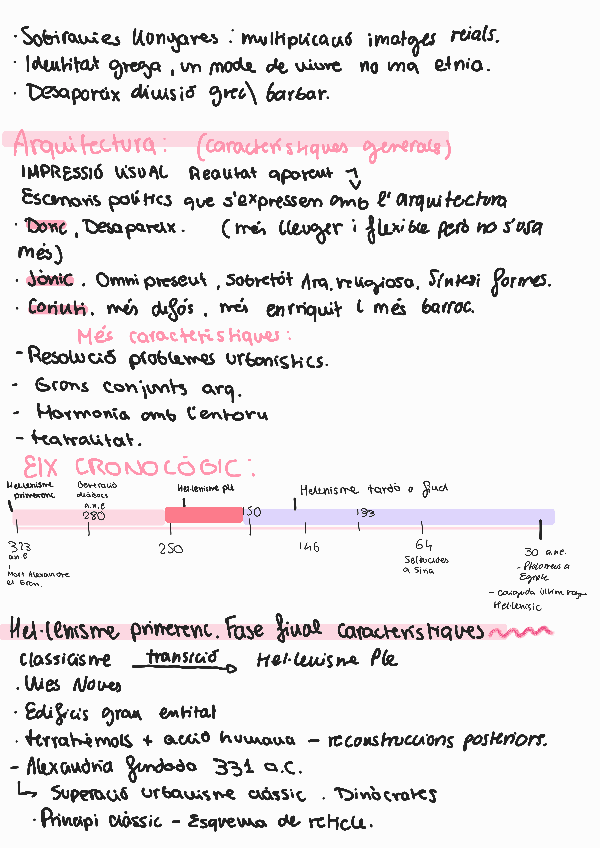 · Sobiranies llunyanes : multiplicació imatges reials.
· Identitat grega, un mode de viure no ma etnia.
· Desapareix divisió grec\ barbar.
Arquitectura: (característiques generals)
IMPRESSIÓ VISUAL Realitat aparent
Escenaris polítics que s'expressen amb l'arquitectura
· Dòric, Desapareix. (més lleuger i flexible però no s'usa
més)
· Jònic. Omnipresent, sobretòt Arq. religiosa, Síntesi formes.
· Corinti. més difós, més enriquit i més barroc.
Més característiques:
- Resolució problemes urbanístics.
- Grans conjunts arq.
- Harmonia amb l'entorn
- teatralitat.
EIX CRONOLÒGIC:
Hel·lenisme primerenc
diàdocs a.n.e
Hel·lenisme ple
Hel·lenisme tardà o final
280
150
133
323 a.n.e
250
146
64
30 a.n.e.
Mort Alexandre el Gran.
Selèucides a Síria
- Ptolomeus a Egipte
- Caiguda últim regne Hel·lenístic
Hel·lenisme primerenc. Fase final característiques
Classicisme transició Hel·lenisme Ple
· Viles Noves
· Edificis gran entitat
· terratrèmols + acció humana - reconstruccions posteriors.
- Alexandria fundada 331 a.C.
Superació urbanisme clàssic. Dinòcrates
· Principi clàssic - Esquema de retícle.